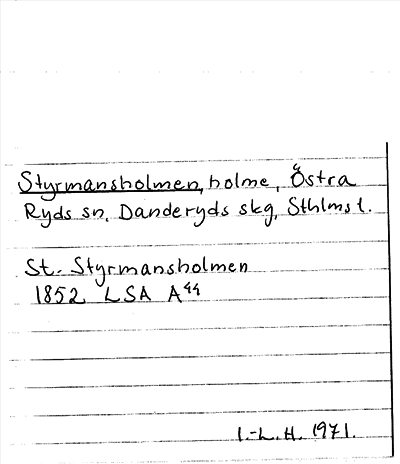 Styrmansholmen, holme, Östra
Ryds sn, Danderyds skg, Sthlms l.
St. Styrmansholmen
1852 LSA A⁴⁴
I.-L.H. 1971.